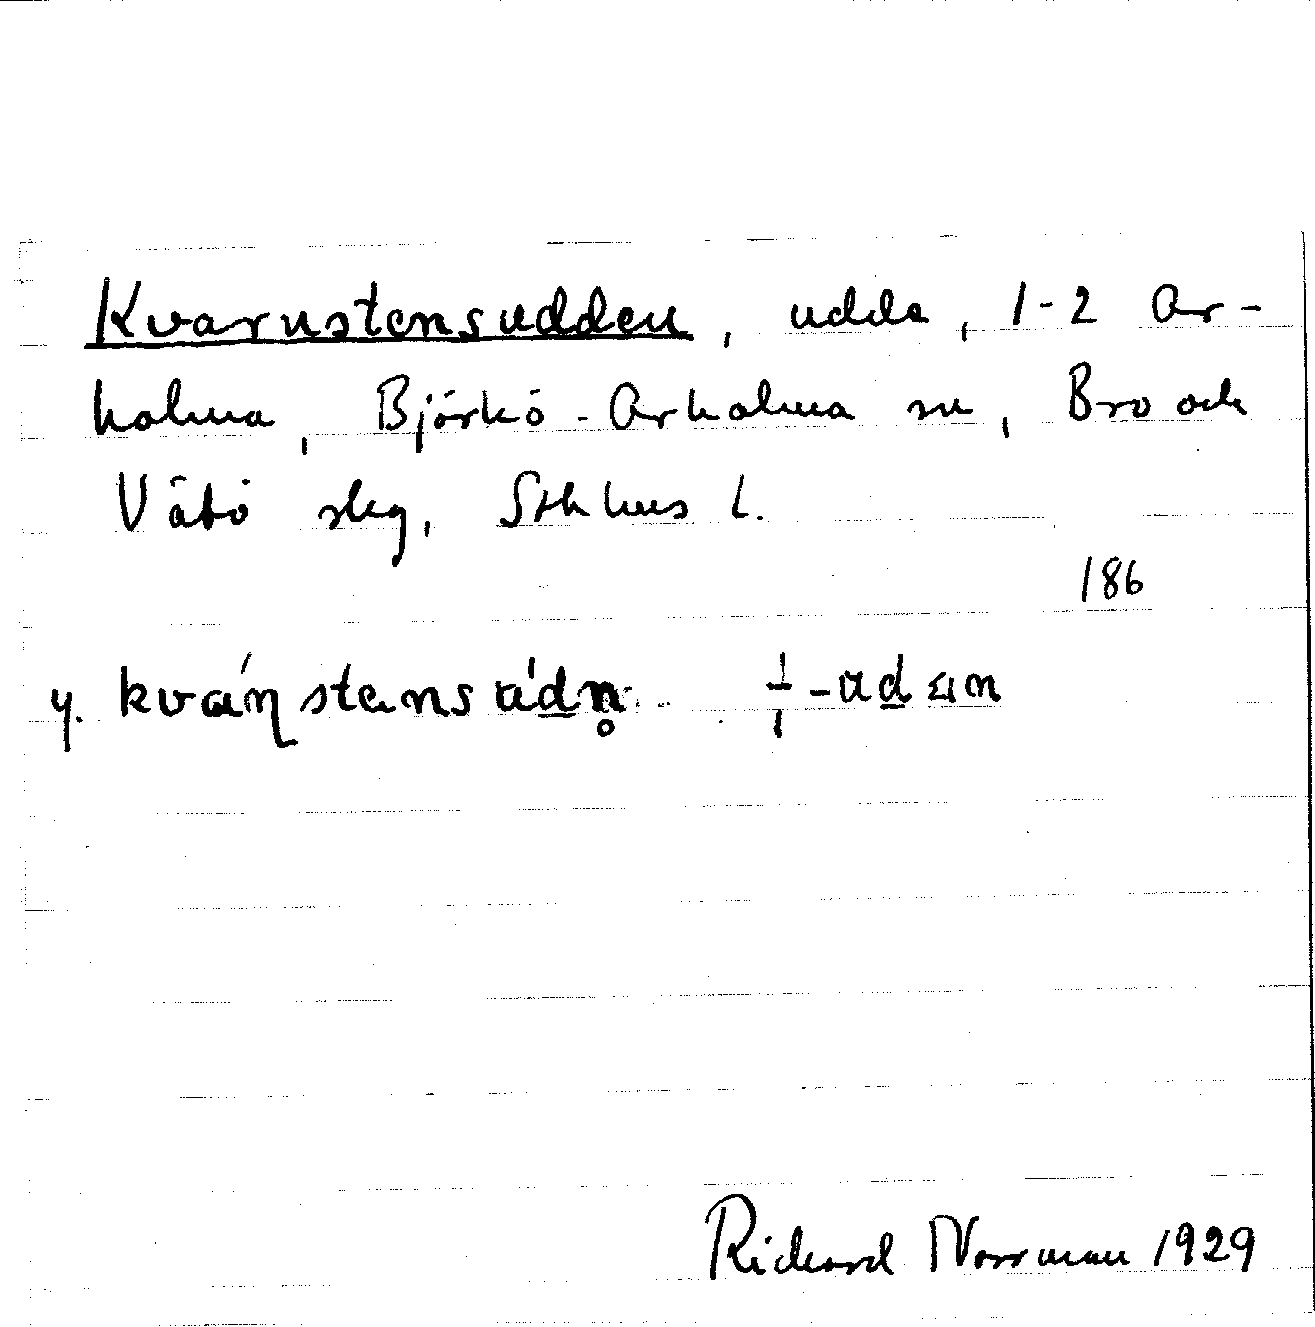 Kvarnstensudden, udde, 1-2 Ar-
holma, Björkö-Arholma sn, Bro och
Vätö skg, Sthlms l.
186
y. kváṇstensúd̲n̥ ⸓ -ud̲ən
Rickard Norrman 1929